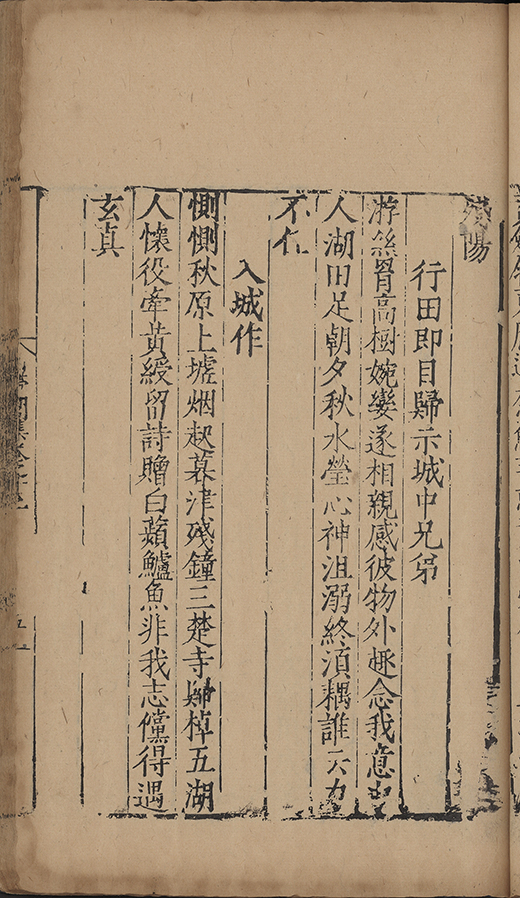 殘陽
行田即目歸示城中兄弟
游絲罥高樹婉孌遂相親感彼物外趣念我意中
人湖田足朝夕秋水瑩心神沮溺終須耦誰云力
不任
入城作
惻惻秋原上墟烟起暮津殘鐘三楚寺歸棹五湖
人懷役牽黃綬留詩贈白蘋鱸魚非我志儻得遇
玄真